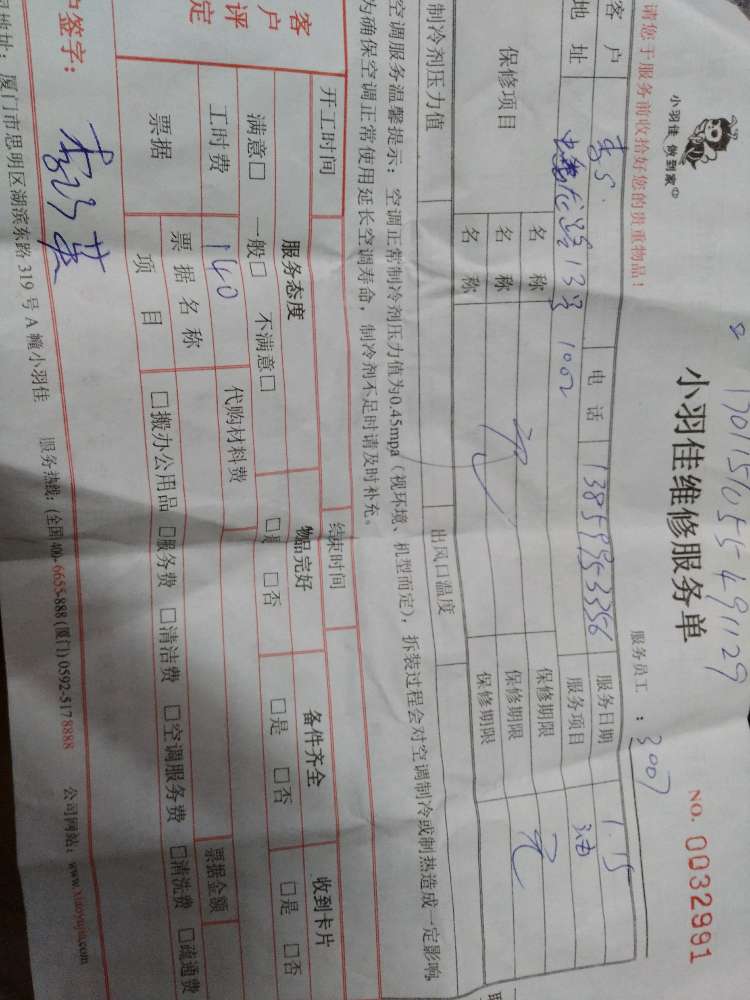 小羽佳 做到家
小羽佳维修服务单
NO. 0032991
请您于服务前收拾好您的贵重物品！
服务员工：3007
客户 李S. 电话 13859953356 服务日期 1.15
地址 13号 1002 服务项目
保修项目 名称 保修期限
名称 保修期限
名称 保修期限
制冷剂压力值 出风口温度
空调服务温馨提示：空调正常制冷剂压力值为0.45mpa（视环境、机型而定），拆装过程会对空调制冷或制热造成一定影响
为确保空调正常使用延长空调寿命，制冷剂不足时请及时补充。
开工时间 结束时间
客户评定 服务态度 物品完好 备件齐全 收到卡片
满意□ 一般□ 不满意□ □是 □否 □是 □否 □是 □否
工时费 140 代购材料费
票据 票据名称 票据金额
项目 □搬办公用品 □服务费 □清洁费 □空调服务费 □清洗费 □疏通费
户签字：
地址：厦门市思明区湖滨东路319号A幢小羽佳 服务热线：(全国)400-6655-888 (厦门) 0592-5178888 公司网站：www.xiaoyujia.com